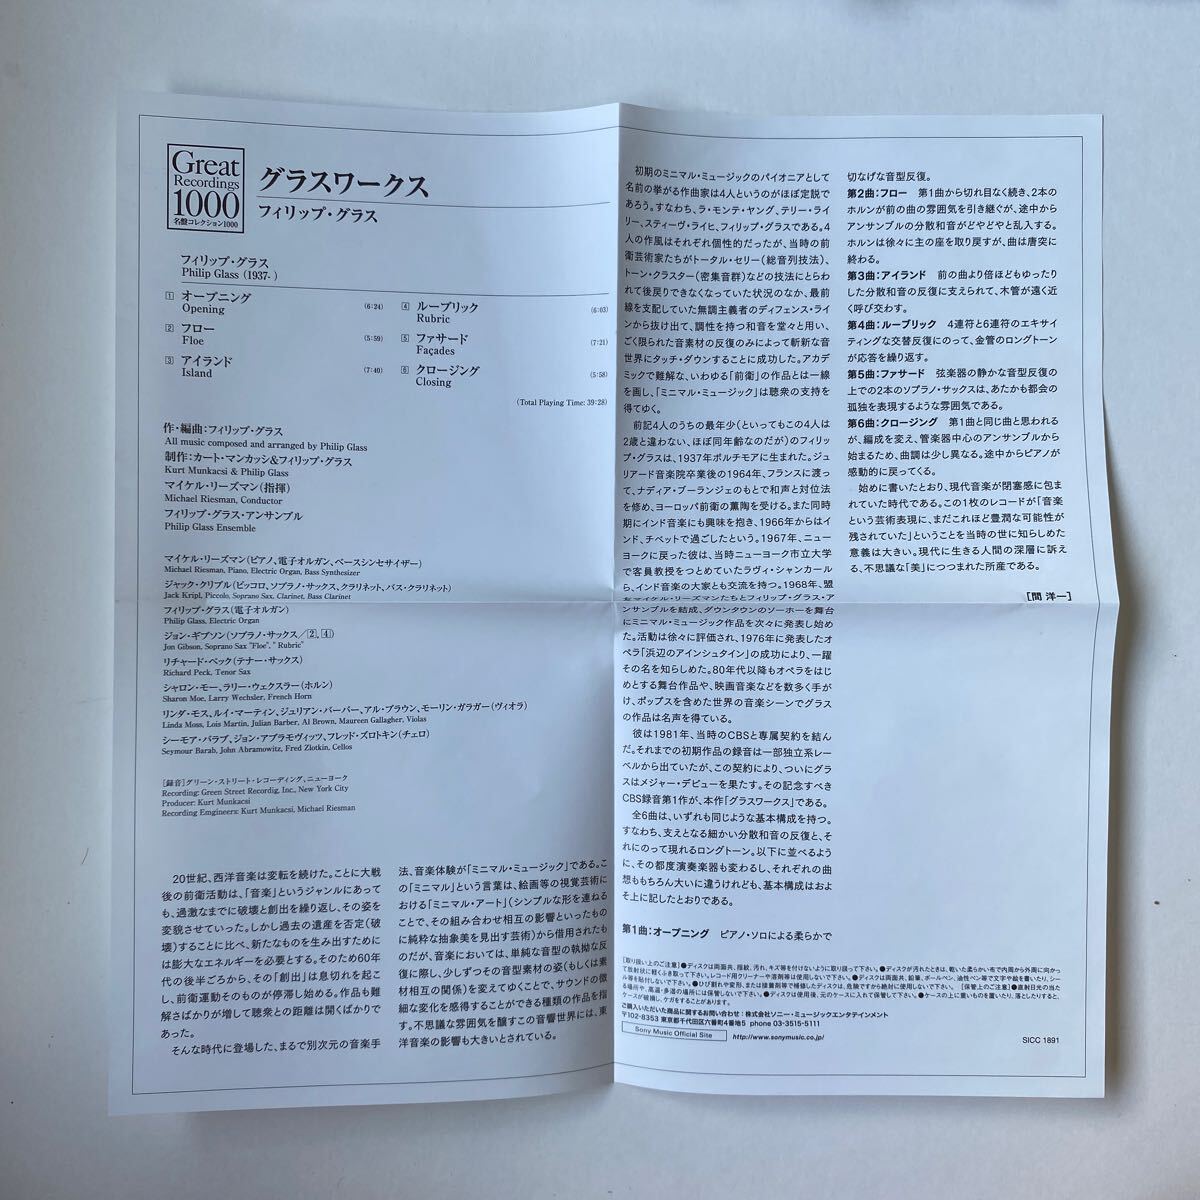 Great
Recordings
1000
名盤コレクション1000
グラスワークス
フィリップ・グラス
フィリップ・グラス
Philip Glass (1937- )
1 オープニング (6:24)
Opening
2 フロー (5:59)
Floe
3 アイランド (7:40)
Island
4 ルーブリック (6:03)
Rubric
5 ファサード (7:21)
Façades
6 クロージング (5:58)
Closing
(Total Playing Time: 39:28)
作・編曲：フィリップ・グラス
All music composed and arranged by Philip Glass
制作：カート・マンカッシ&フィリップ・グラス
Kurt Munkacsi & Philip Glass
マイケル・リーズマン（指揮）
Michael Riesman, Conductor
フィリップ・グラス・アンサンブル
Philip Glass Ensemble
マイケル・リーズマン（ピアノ、電子オルガン、ベースシンセサイザー）
Michael Riesman, Piano, Electric Organ, Bass Synthesizer
ジャック・クリプル（ピッコロ、ソプラノ・サックス、クラリネット、バス・クラリネット）
Jack Kripl, Piccolo, Soprano Sax, Clarinet, Bass Clarinet
フィリップ・グラス（電子オルガン）
Philip Glass, Electric Organ
ジョン・ギブソン（ソプラノ・サックス／[2],[4]）
Jon Gibson, Soprano Sax "Floe", " Rubric"
リチャード・ペック（テナー・サックス）
Richard Peck, Tenor Sax
シャロン・モー、ラリー・ウェクスラー（ホルン）
Sharon Moe, Larry Wechsler, French Horn
リンダ・モス、ルイ・マーティン、ジュリアン・バーバー、アル・ブラウン、モーリン・ガラガー（ヴィオラ）
Linda Moss, Lois Martin, Julian Barber, Al Brown, Maureen Gallagher, Violas
シーモア・バラブ、ジョン・アブラモヴィッツ、フレッド・ズロトキン（チェロ）
Seymour Barab, John Abramowitz, Fred Zlotkin, Cellos
［録音］グリーン・ストリート・レコーディング、ニューヨーク
Recording: Green Street Recordig, Inc., New York City
Producer: Kurt Munkacsi
Recording Emgineers: Kurt Munkacsi, Michael Riesman
20世紀、西洋音楽は変転を続けた。ことに大戦
後の前衛活動は、「音楽」というジャンルにあって
も、過激なまでに破壊と創出を繰り返し、その姿を
変貌させていった。しかし過去の遺産を否定（破
壊）することに比べ、新たなものを生み出すために
は膨大なエネルギーを必要とする。そのため60年
代の後半ごろから、その「創出」は息切れを起こ
し、前衛運動そのものが停滞し始める。作品も難
解さばかりが増して聴衆との距離は開くばかりで
あった。
そんな時代に登場した、まるで別次元の音楽手
法、音楽体験が「ミニマル・ミュージック」である。こ
の「ミニマル」という言葉は、絵画等の視覚芸術に
おける「ミニマル・アート」（シンプルな形を連ねる
ことで、その組み合わせ相互の影響といったもの
に純粋な抽象美を見出す芸術）から借用されたも
のだが、音楽においては、単純な音型の執拗な反
復に際し、少しずつその音型素材の姿（もしくは素
材相互の関係）を変えてゆくことで、サウンドの微
細な変化を感得することができる種類の作品を指
す。不思議な雰囲気を醸すこの音響世界には、東
洋音楽の影響も大きいとされている。
初期のミニマル・ミュージックのパイオニアとして
名前の挙がる作曲家は4人というのがほぼ定説で
あろう。すなわち、ラ・モンテ・ヤング、テリー・ライ
リー、スティーヴ・ライヒ、フィリップ・グラスである。4
人の作風はそれぞれ個性的だったが、当時の前
衛芸術家たちがトータル・セリー（総音列技法）、
トーン・クラスター（密集音群）などの技法にとらわ
れて後戻りできなくなっていた状況のなか、最前
線を支配していた無調主義者のディフェンス・ライ
ンから抜け出て、調性を持つ和音を堂々と用い、
ごく限られた音素材の反復のみによって斬新な音
世界にタッチ・ダウンすることに成功した。アカデ
ミックで難解な、いわゆる「前衛」の作品とは一線
を画し、「ミニマル・ミュージック」は聴衆の支持を
得てゆく。
前記4人のうちの最年少（といってもこの4人は
2歳と違わない、ほぼ同年齢なのだが）のフィリッ
プ・グラスは、1937年ボルチモアに生まれた。ジュ
リアード音楽院卒業後の1964年、フランスに渡っ
て、ナディア・ブーランジェのもとで和声と対位法
を修め、ヨーロッパ前衛の薫陶を受ける。また同時
期にインド音楽にも興味を抱き、1966年からはイ
ンド、チベットで過ごしたという。1967年、ニュー
ヨークに戻った彼は、当時ニューヨーク市立大学
で客員教授をつとめていたラヴィ・シャンカール
ら、インド音楽の大家とも交流を持つ。1968年、盟
友マイケル・リーズマンたちとフィリップ・グラス・ア
ンサンブルを結成、ダウンタウンのソーホーを舞台
にミニマル・ミュージック作品を次々に発表し始め
た。活動は徐々に評価され、1976年に発表したオ
ペラ「浜辺のアインシュタイン」の成功により、一躍
その名を知らしめた。80年代以降もオペラをはじ
めとする舞台作品や、映画音楽などを数多く手が
け、ポップスを含めた世界の音楽シーンでグラス
の作品は名声を得ている。
彼は1981年、当時のCBSと専属契約を結ん
だ。それまでの初期作品の録音は一部独立系レー
ベルから出ていたが、この契約により、ついにグラ
スはメジャー・デビューを果たす。その記念すべき
CBS録音第1作が、本作「グラスワークス」である。
全6曲は、いずれも同じような基本構成を持つ。
すなわち、支えとなる細かい分散和音の反復と、そ
れにのって現れるロングトーン。以下に並べるよう
に、その都度演奏楽器も変わるし、それぞれの曲
想ももちろん大いに違うけれども、基本構成はおよ
そ上に記したとおりである。
第1曲：オープニング ピアノ・ソロによる柔らかで
切なげな音型反復。
第2曲：フロー 第1曲から切れ目なく続き、2本の
ホルンが前の曲の雰囲気を引き継ぐが、途中から
アンサンブルの分散和音がどやどやと乱入する。
ホルンは徐々に主の座を取り戻すが、曲は唐突に
終わる。
第3曲：アイランド 前の曲より倍ほどもゆったり
した分散和音の反復に支えられて、木管が遠く近
く呼び交わす。
第4曲：ルーブリック 4連符と6連符のエキサイ
ティングな交替反復にのって、金管のロングトーン
が応答を繰り返す。
第5曲：ファサード 弦楽器の静かな音型反復の
上での2本のソプラノ・サックスは、あたかも都会の
孤独を表現するような雰囲気である。
第6曲：クロージング 第1曲と同じ曲と思われる
が、編成を変え、管楽器中心のアンサンブルから
始まるため、曲調は少し異なる。途中からピアノが
感動的に戻ってくる。
始めに書いたとおり、現代音楽が閉塞感に包ま
れていた時代である。この1枚のレコードが「音楽
という芸術表現に、まだこれほど豊潤な可能性が
残されていた」ということを当時の世に知らしめた
意義は大きい。現代に生きる人間の深層に訴え
る、不思議な「美」につつまれた所産である。
［間 洋一］
［取り扱い上のご注意］●ディスクは両面共、指紋、汚れ、キズ等を付けないように取り扱って下さい。●ディスクが汚れたときは、乾いた柔らかい布で内周から外周に向かっ
て放射状に軽くふき取って下さい。レコード用クリーナーや溶剤等は使用しないで下さい。●ディスクは両面共、鉛筆、ボールペン、油性ペン等で文字や絵を書いたり、シー
ル等を貼付しないで下さい。●ひび割れや変形、または接着剤等で補修したディスクは、危険ですから絶対に使用しないで下さい。［保管上のご注意］●直射日光の当た
る場所や、高温・多湿の場所には保管しないで下さい。●ディスクは使用後、元のケースに入れて保管して下さい。●ケースの上に重いものを置いたり、落としたりすると、
ケースが破損し、ケガをすることがあります。
ご購入いただいた商品に関するお問い合わせ：株式会社ソニー・ミュージックエンタテインメント
〒102-8353 東京都千代田区六番町4番地5 phone 03-3515-5111
Sony Music Official Site http://www.sonymusic.co.jp/
SICC 1891